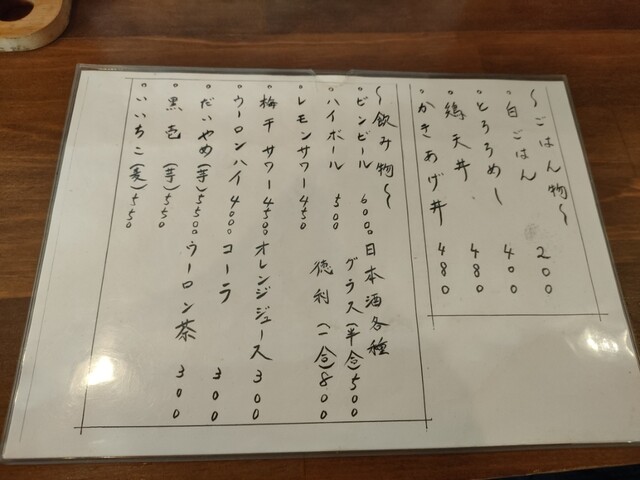 〜ごはん物〜
・白ごはん 200
・とろろめし 400
・鶏天丼 480
・かきあげ丼 480
〜飲み物〜
・ビンビール 600
・ハイボール 500
・レモンサワー 450
・梅干サワー 450
・ウーロンハイ 400
・だいやめ(芋) 550
・黒壱(芋) 550
・いいちこ(麦) 550
日本酒各種
グラス(半合) 500
徳利(一合) 800
オレンジジュース 300
コーラ 300
ウーロン茶 300